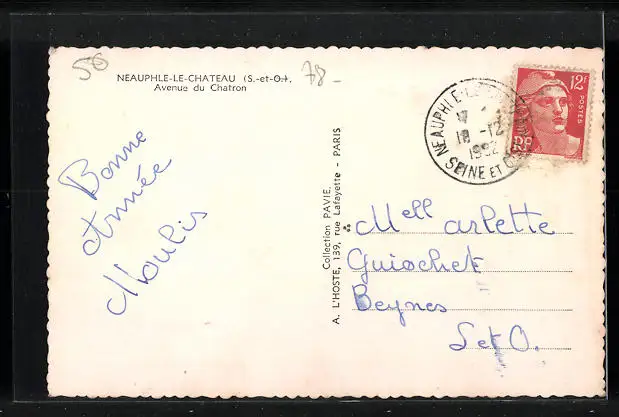 50
NEAUPHLE-LE-CHATEAU (S.-et-O.).
Avenue du Chatron
78-
Bonne
Année
Moulis
Collection PAVIE.
A. L'HOSTE, 139, rue Lafayette - PARIS
NEAUPHLE-LE-CHATEAU
17
18 -12
1952
SEINE ET O
12F
POSTES
RF
Mell arlette
Guiochet
Beynes
S et O.